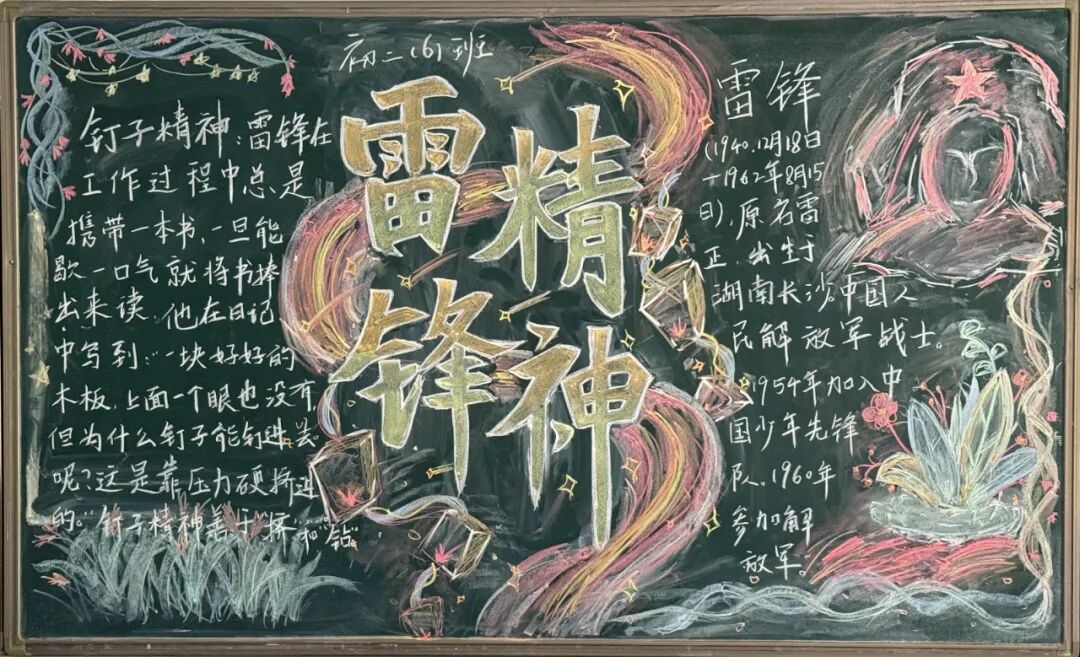 初二(6)班
雷锋
精神
钉子精神:雷锋在
工作过程中总是
携带一本书,一旦能
歇一口气就将书捧
出来读.他在日记
中写到:“一块好好的
木板,上面一个眼也没有
但为什么钉子能钉进去
呢?这是靠压力硬挤进
的。”钉子精神善于“挤”和“钻”
雷锋
(1940.12月18日
—1962年8月15
日),原名雷
正,出生于
湖南长沙。中国人
民解放军战士。
1954年加入中
国少年先锋
队。1960年
参加解
放军。